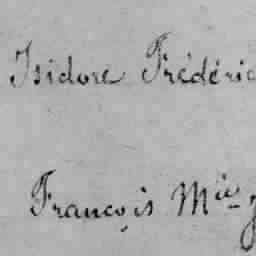 Isidore Frédéric
François Mie